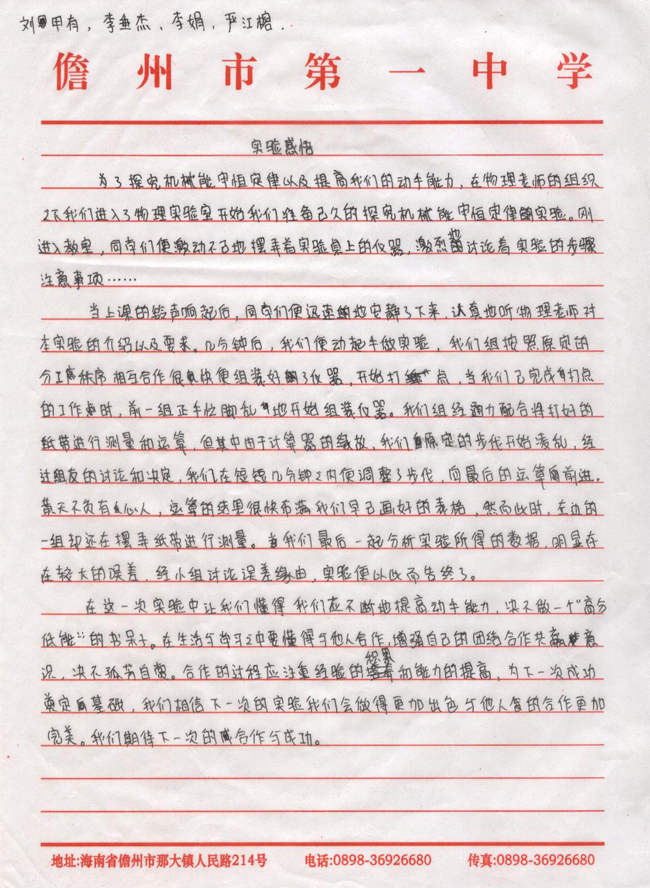 刘甲有，李垂杰、李娟，严江榕．
儋州市第一中学
实验感悟
为了探究机械能守恒定律以及提高我们的动手能力，在物理老师的组织
之下我们进入了物理实验室开始我们准备已久的探究机械能守恒定律的实验。刚
进入教室，同学们便激动不已地摆弄着实验桌上的仪器，激烈地讨论着实验的步骤
注意事项……
当上课的铃声响起后，同学们便迅速地安静了下来，认真地听物理老师对
本实验的介绍以及要求。几分钟后，我们便动起手做实验，我们组按照原定的
分工秩序相互合作很快便组装好了仪器，开始打点，当我们已完成打点
的工作时，前一组正手忙脚乱地开始组装仪器。我们组经通力配合将打好的
纸带进行测量和运算，但其中由于计算器的缘故，我们原定的步伐开始凌乱，经
过组友的讨论和决定，我们在短短几分钟之内便调整了步伐，向最后的运算前进。
黄天不负有心人，运算的结果很快布满我们早已画好的表格，然而此时，右边的
一组却还在摆弄纸带进行测量。当我们最后一起分析实验所得的数据，明显存
在较大的误差，经小组讨论误差缘由，实验便以此而告终了。
在这一次实验中让我们懂得我们应不断地提高动手能力，决不做一个“高分
低能”的书呆子。在生活与学习之中要懂得与他人合作，增强自己的团结合作意
识，决不孤芳自赏。合作的过程应注重经验的积累和能力的提高，为下一次成功
奠定基础，我们相信下一次的实验我们会做得更加出色与他人的合作更加
完美。我们期待下一次的合作与成功。
地址:海南省儋州市那大镇人民路214号 电话:0898-36926680 传真:0898-36926680